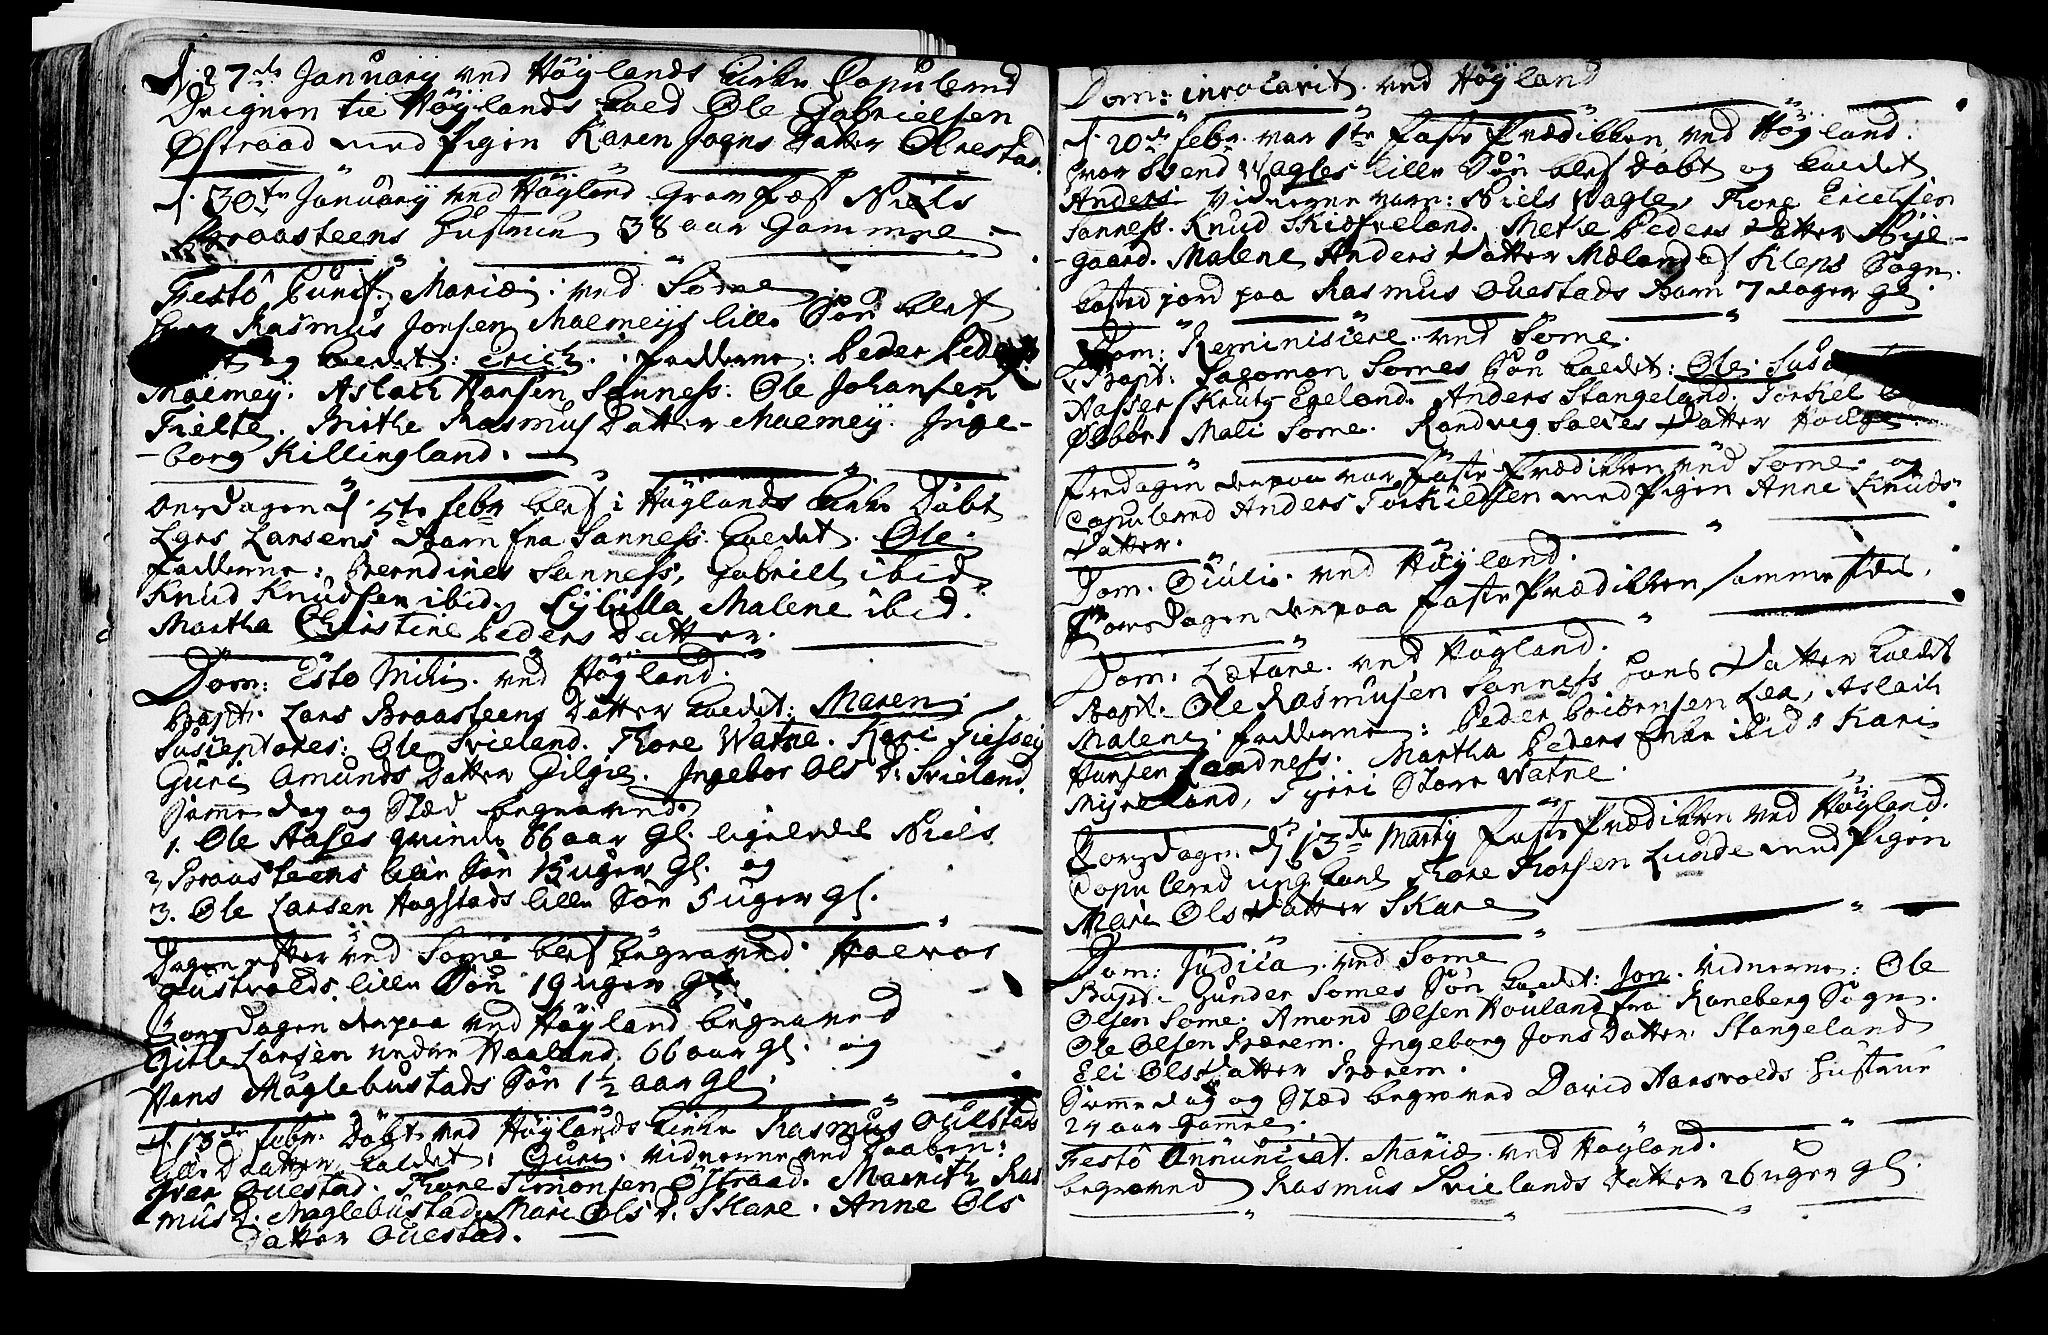 d. 27de January ved Höylands Kirke Copulered
Drengen til Höylands Kald Ole Gabrielsen
Østraad med Pigen Karen Jogns Datter Olvestad.
d. 30te January ved Höyland Gravfæst Niels
Braasteens Hustrue 38 aar Gammel
Festô Purif. Mariæ. ved Some
hvor Rasmus Jonsen Malmeijs lille Sön blef
og kaldet: Erich. Fadderne: Peder Peders
Malmeij. Aslach Hansen Sanness. Ole Johansen
Tielte. Birthe Rasmus Datter Malmeij. Inge-
-borg Killingland.
Onsdagen d. 5te febr blef i Höylands Kirke Döbt
Lars Larsens Barn fra Sanness. kaldet. Ole.
Fadderne: Berndines Sanness, Gabriell ibid
Knud Knudsen ibid. Sybilla Malene ibid.
Martha Christine Peders Datter.
Dom: Esto Mihi. ved Höyland.
Bapt. Lars Braasteens Datter kaldet: Maren
Susceptores: Ole Svieland. Tore Watne. Kari Tiessey
Guri Amunds Datter Gilgie. Ingebor Ols D: Svieland.
Samme dag og Stæd begraved.
1. Ole Aases qvinde 66 aar Gl. ligeledes Niels
2, Braasteens lille Sön 15 uger Gl. og
3. Ole Larsen Hogstads lille Sön 5 uger gl.
Dagen efter ved Some blef begraved Halvor
Gustvolds lille Sön 19 uger Gl.
Torsdagen derpaa ved Höyland begraved
Gitle Larsen nedre Haaland. 66 aar gl. og
Hans Maglebustads Sön 1 1/2 aar Gl.
d. 13de febr. Döbt ved Höylands Kirke Rasmus Ouestads
lille Daatter kaldet: Guri. vidnerne ved Daaben:
Iver Ouestad. Tore Simonsen Östraad. Marith Ras
-mus D. Maglebustad, Mari Ols D. Skare. Anne Ols
Datter Ouestad.
Dom: invocavit. ved Höyland
d. 20de febr. var 1te Faste Prædikken ved Höyland.
hvor Svend Wagles lille Sön blef Döbt og kaldet
Anders. Vidnerne vare: Niels Wagle, Tore Erichsen
Sanness. Knud Skiæfveland. Mette Peders Datter Bye-
-gaard. Malene Anders Datter Mæland af Kleps Sogn.
kasted jord paa Rasmus Ouestads Barn 7 dager gl.
Dom: Reminiscere. ved Some.
Bapt: Sagomon Somes Sön kaldet: Ole. Susc
Aasser Kruts Egeland. Anders Stangeland. Torkel
Ølbör. Mali Some. Randveg Salves Datter Houge.
Fredagen derpaa var Faste Prædikken ved Some. og
Copulered Anders Torkielsen med Pigen Anne Knuds
Datter.
Dom. Oculi. ved Höyland.
Torsdagen derpaa Faste Prædikken samme stæd.
Dom: Lætare. ved Höyland.
Bapt. Ole Rasmusen Sanness hans Datter kaldet
Malene. Fadderne: Peder Beiörnsen Lea, Aslach
Hansen Sandness. Martha Peders ibid. Kari
Myreland, Tyeri Store Watne.
Torsdagen d 13de Martij Faste Prædikken ved Höyland.
Copulered ung karl Tore Torsen Lunde med Pigen
Mari Ols Datter Skare
Dom: Judica. ved Some
Bapt. Gunder Somes Sön kaldet: Jon. vidnerne: Ole
Olsen Some. Amond Olsen Houland fra Raneberg Sogn.
Ole Olsen Sværem. Ingeborg Jons Datter Stangeland
Eli Ols Datter Sværem.
Samme dag og Stæd begraved David Aarsvolds Hustrue
24 aar Gammel.
Festô Annunciat. Mariæ. ved Höyland.
begraved Rasmus Svielands Datter 26 uger gl.